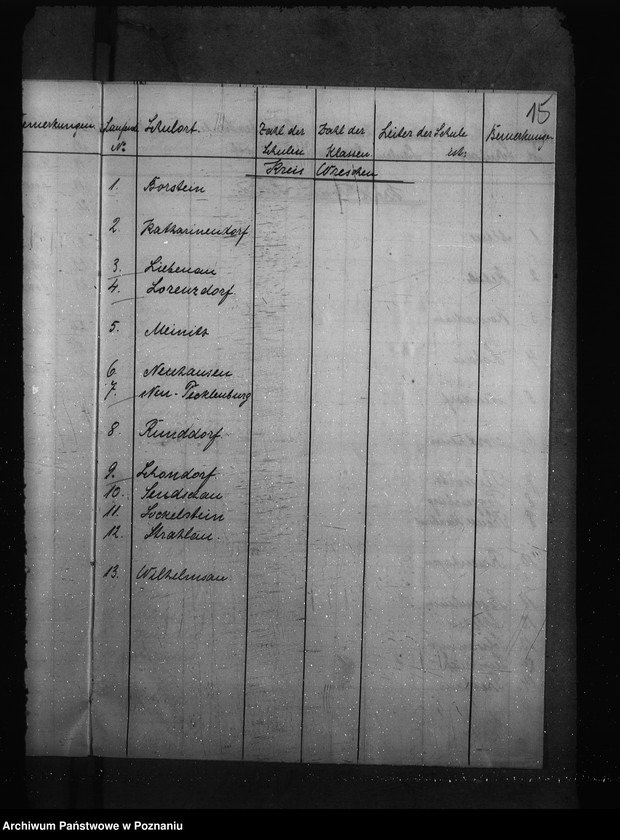 15
Bemerkungen
Laufende No. Schulort. Zahl der Schulen Zahl der Klassen Leiter der Schule ist: Bemerkungen
Kreis Wreschen
1. Borstein
2. Katharinendorf
3. Liebenau
4. Lorenzdorf
5. Meinitz
6. Neuhausen
7. Neu-Tecklenburg
8. Runddorf
9. Schondorf
10. Sendschau
11. Sockelstein
12. Strahlau.
13. Wilhelmsau
Archiwum Państwowe w Poznaniu